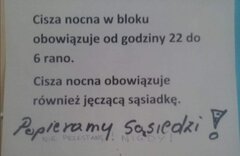 Cisza nocna w bloku
obowiązuje od godziny 22 do
6 rano.
Cisza nocna obowiązuje
również jęczącą sąsiadkę.
Popieramy Sąsiedzi!
NIE PRZESTAWAJ! NIGDY!